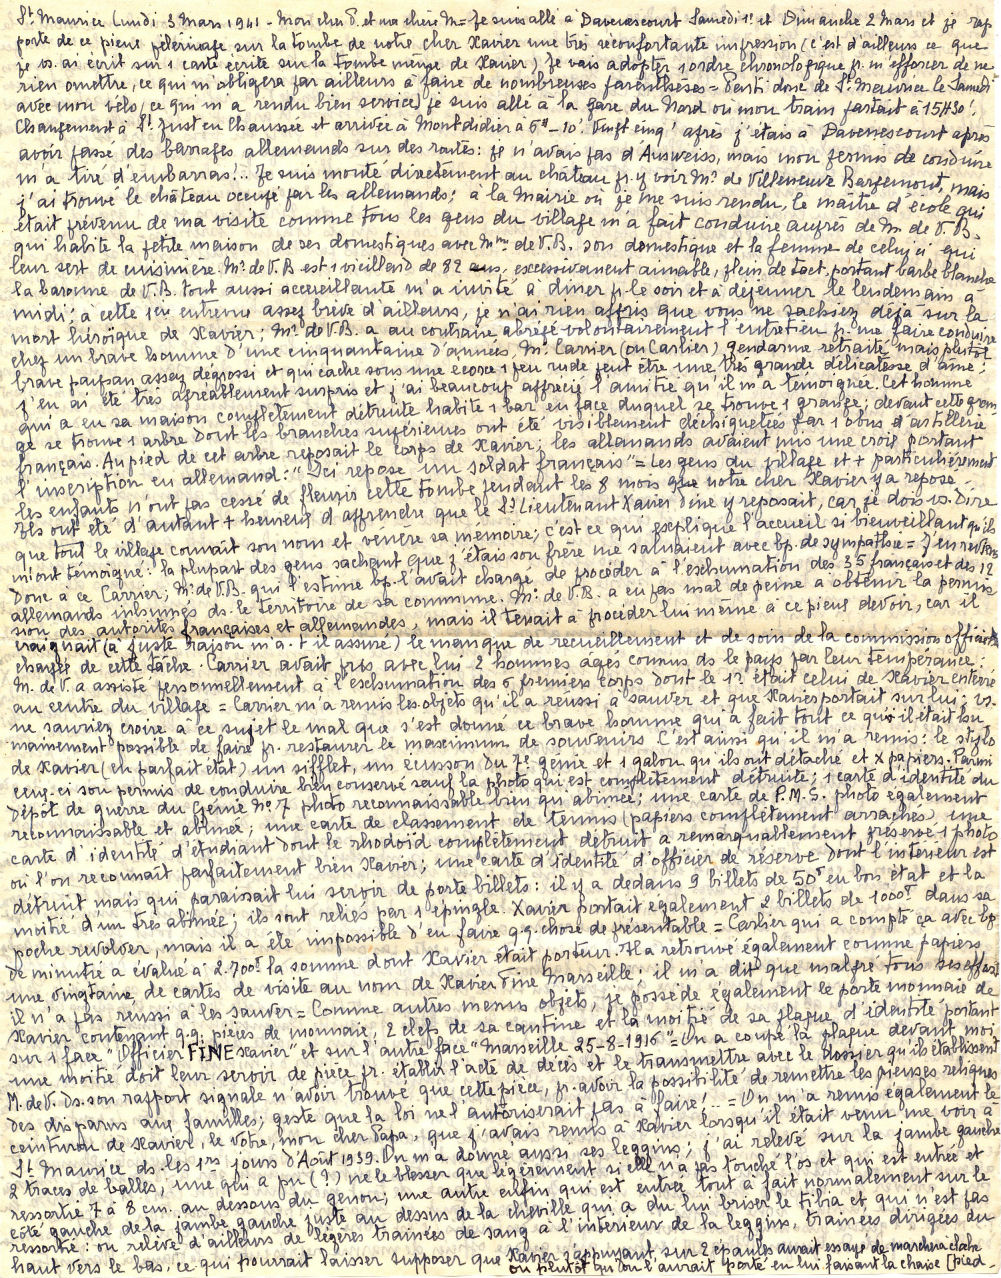 St Maurice Lundi 3 Mars 1941 - Mon cher P. et ma chère M = Je suis allé à Davenescourt Samedi 1er et Dimanche 2 Mars et je rap
porte de ce pieux pélerinage sur la tombe de notre cher Xavier une très réconfortante impression (c'est d'ailleurs ce que
je vs. ai écrit sur 1 carte écrite sur la tombe même de Xavier) Je vais adopter 1 ordre chronologique pr. m'efforcer de ne
rien omettre, ce qui m'obligera par ailleurs à faire de nombreuses parenthèses = Parti donc de St Maurice le Samedi
avec mon vélo, ce qui m'a rendu bien service, je suis allé à la gare du Nord où mon train partait à 15H30'.
Changement à St Just en Chaussée et arrivée à Montdidier à 6H-10'. Vingt cinq' après j'étais à Davenescourt après
avoir passé des barrages allemands sur des routes: je n'avais pas d'Ausweiss, mais mon permis de conduire
m'a tiré d'embarras!.. Je suis monté directement au château pr. y voir Mr. de Villeneuve Bargemont, mais
j'ai trouvé le château occupé par les allemands; à la Mairie où je me suis rendu, le maître d'école qui
était prévenu de ma visite comme tous les gens du village m'a fait conduire auprès de M. de V.B.
qui habite la petite maison de ses domestiques avec Mme de V.B. son domestique et la femme de celui ci qui
leur sert de cuisinière. Mr. de V.B est 1 vieillard de 82 ans, excessivement aimable, plein de tact, portant barbe blanche
la baronne de V.B. tout aussi accueillante m'a invité à diner pr. le soir et à déjeuner le lendemain à
midi; à cette 1ère entrevue assez brève d'ailleurs, je n'ai rien appris que vous ne sachiez déjà sur la
mort héroïque de Xavier; Mr. de V.B. a au contraire abrégé volontairement l'entretien pr. me faire conduire
chez un brave homme d'une cinquantaine d'années, Mr. Carrier (ou Carlier) gendarme retraité mais plutôt
brave paysan assez dégrossi et qui cache sous une écorce 1 peu rude peut être une très grande délicatesse d'âme:
j'en ai été très agréablement surpris et j'ai beaucoup apprécié l'amitié qu'il m'a témoignée. Cet homme
qui a eu sa maison complètement détruite habite 1 bar en face duquel se trouve 1 grange; devant cette gran
ge se trouve 1 arbre dont les branches supérieures ont été visiblement déchiquetées par 1 obus d'artillerie
français. Au pied de cet arbre reposait le corps de Xavier; les allemands avaient mis une croix portant
l'inscription en allemand: "Ici repose un soldat français" = Les gens du village et + particulièrement
les enfants n'ont pas cessé de fleurir cette tombe pendant les 8 mois que notre cher Xavier y a reposé.
Ils ont été d'autant + heureux d'apprendre que le St Lieutenant Xavier Fine y reposait, car je dois vs. dire
que tout le village connait son nom et vénère sa mémoire; c'est ce qui explique l'accueil si bienveillant qu'ils
m'ont témoigné: la plupart des gens sachant que j'étais son frère me saluaient avec bp. de sympathie = J'en reviens
donc à ce Carrier; Mr. de V.B. qui l'estime bp. l'avait chargé de procéder à l'exhumation des 35 français et des 12
allemands inhumés ds. le territoire de sa commune. Mr. de V.B. a eu pas mal de peine à obtenir la permis
sion des autorités françaises et allemandes, mais il tenait à procéder lui même à ce pieux devoir, car il
craignait (à juste raison m'a-t-il assuré) le manque de recueillement et de soin de la commission officielle
chargée de cette tâche. Carrier avait pris avec lui 2 hommes agés connus ds le pays par leur tempérance:
M. de V. a assisté personnellement à l'exhumation des 6 premiers corps dont le 1er était celui de Xavier enterré
au centre du village = Carrier m'a remis les objets qu'il a réussi à sauver et que Xavier portait sur lui; vs.
ne sauriez croire à ce sujet le mal que s'est donné ce brave homme qui a fait tout ce qu'il était hu
mainement possible de faire pr. restaurer le maximum de souvenirs C'est ainsi qu'il m'a remis: le stylo
de Xavier (en parfait état) un sifflet, un écusson du 7e génie et 1 galon qu'ils ont détaché et X papiers. Parmi
ceux-ci son permis de conduire bien conservé sauf la photo qui est complètement détruite; 1 carte d'identité du
Dépôt de guerre du Génie No. 7 photo reconnaissable bien qu'abimée; une carte de P.M.S. photo également
reconnaissable et abimée; une carte de classement de tennis (papiers complètement arrachés) une
carte d'identité d'étudiant dont le rhodoïd complètement détruit a remarquablement préservé 1 photo
où l'on reconnait parfaitement bien Xavier; une carte d'identité d'officier de réserve dont l'intérieur est
détruit mais qui paraissait lui servir de porte billets: il y a dedans 9 billets de 50f en bon état et la
moitié d'un très abimée; ils sont reliés par 1 épingle. Xavier portait également 2 billets de 1000f dans sa
poche revolver, mais il a été impossible d'en faire qq. chose de présentable = Carlier qui a compté ça avec bp
de minutie a évalué à 2.700f la somme dont Xavier était porteur. Il a retrouvé également comme papiers
une vingtaine de cartes de visite au nom de Xavier Fine Marseille; il m'a dit que malgré tous ses efforts
il n'a pas réussi à les sauver = Comme autres menus objets, je possède également le porte monnaie de
Xavier contenant qq. pièces de monnaie, 2 clefs de sa cantine et la moitié de sa plaque d'identité portant
sur 1 face "Officier FINE Xavier" et sur l'autre face "Marseille 25-8-1916" = On a coupé la plaque devant moi
une moitié doit leur servir de pièce pr. établir l'acte de décès et le transmettre avec le dossier qu'ils établissent
M. de V. ds. son rapport signale n'avoir trouvé que cette pièce, pr. avoir la possibilité de remettre les pieuses reliques
des disparus aux familles; geste que la loi ne l'autoriserait pas à faire!.. = On m'a remis également le
ceinturon de Xavier, le votre, mon cher Papa, que j'avais remis à Xavier lorsqu'il était venu me voir à
St Maurice ds. les 1ers jours d'Août 1939. On m'a donné aussi ses leggins; j'ai relevé sur la jambe gauche
2 traces de balles, une qui a pu (?) ne le blesser que légèrement si elle n'a pas touché l'os et qui est entrée et
ressortie 7 à 8 cm. au dessous du genou; une autre enfin qui est entrée tout à fait normalement sur le
côté gauche de la jambe gauche juste au dessus de la cheville qui a du lui briser le tibia et qui n'est pas
ressortie: on relève d'ailleurs de légères trainées de sang à l'intérieur de la leggins, trainées dirigées du
haut vers le bas, ce qui pourrait laisser supposer que Xavier s'appuyant sur 2 épaules aurait essayé de marcher à cloche
ou plutôt qu'on l'aurait porté en lui faisant la chaise (pied-